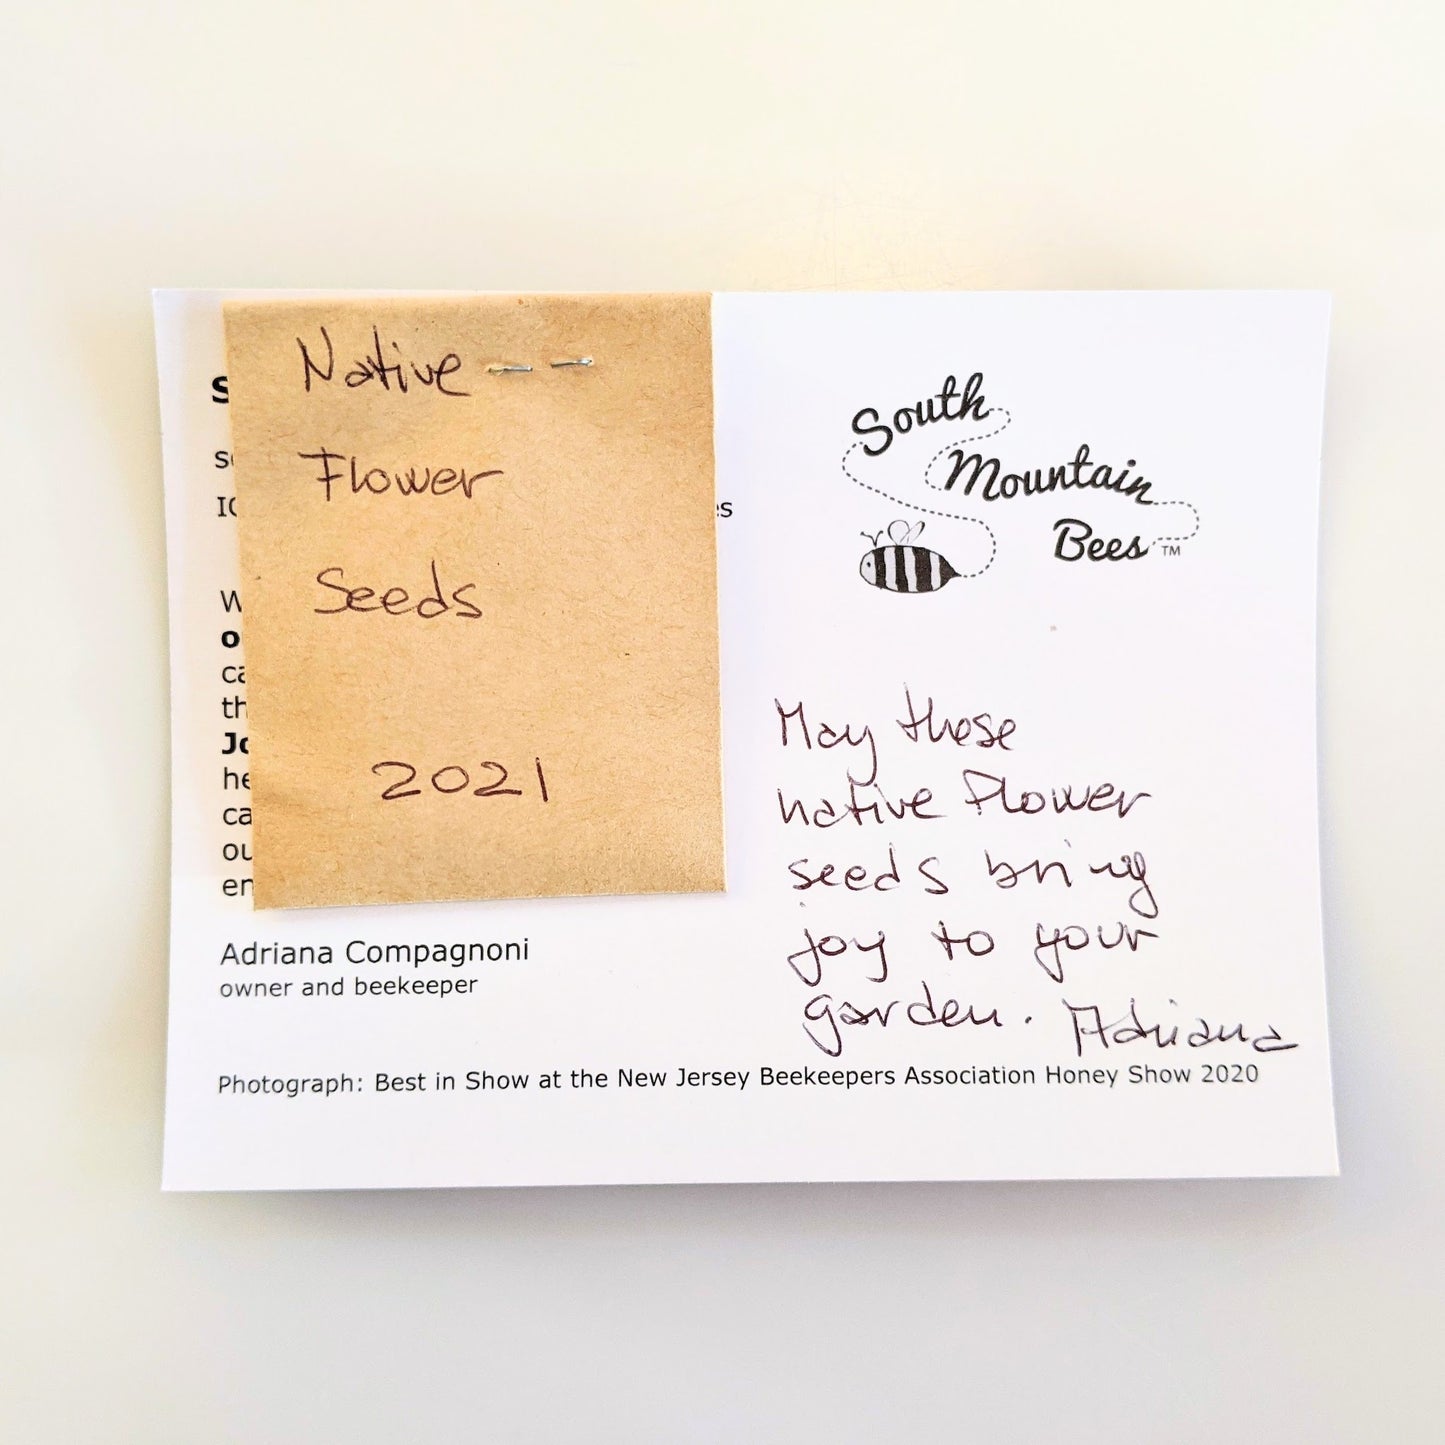 Native
Flower
Seeds
2021
South
Mountain
Bees™
May these
native flower
seeds bring
joy to your
garden. Adriana
Adriana Compagnoni
owner and beekeeper
Photograph: Best in Show at the New Jersey Beekeepers Association Honey Show 2020